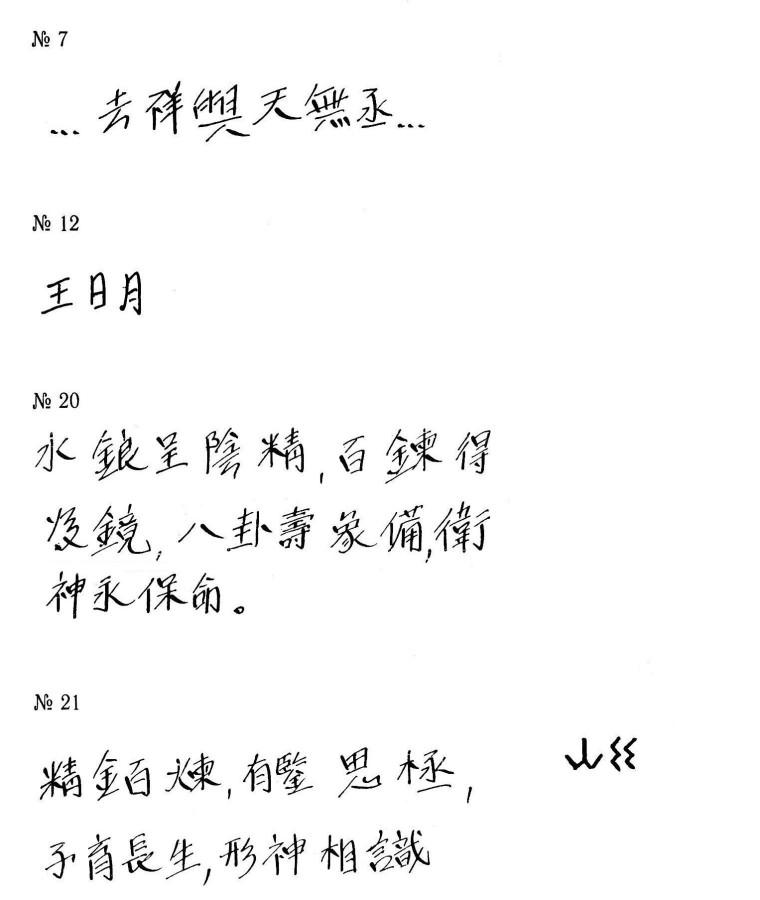 № 7
... 去祥與天無丞...
№ 12
王日月
№ 20
水銀呈陰精, 百鍊得
鏡, 八卦壽象備,衛
神永保命。
№ 21
精金百煉, 有鑒思極,
子育長生, 形神相識